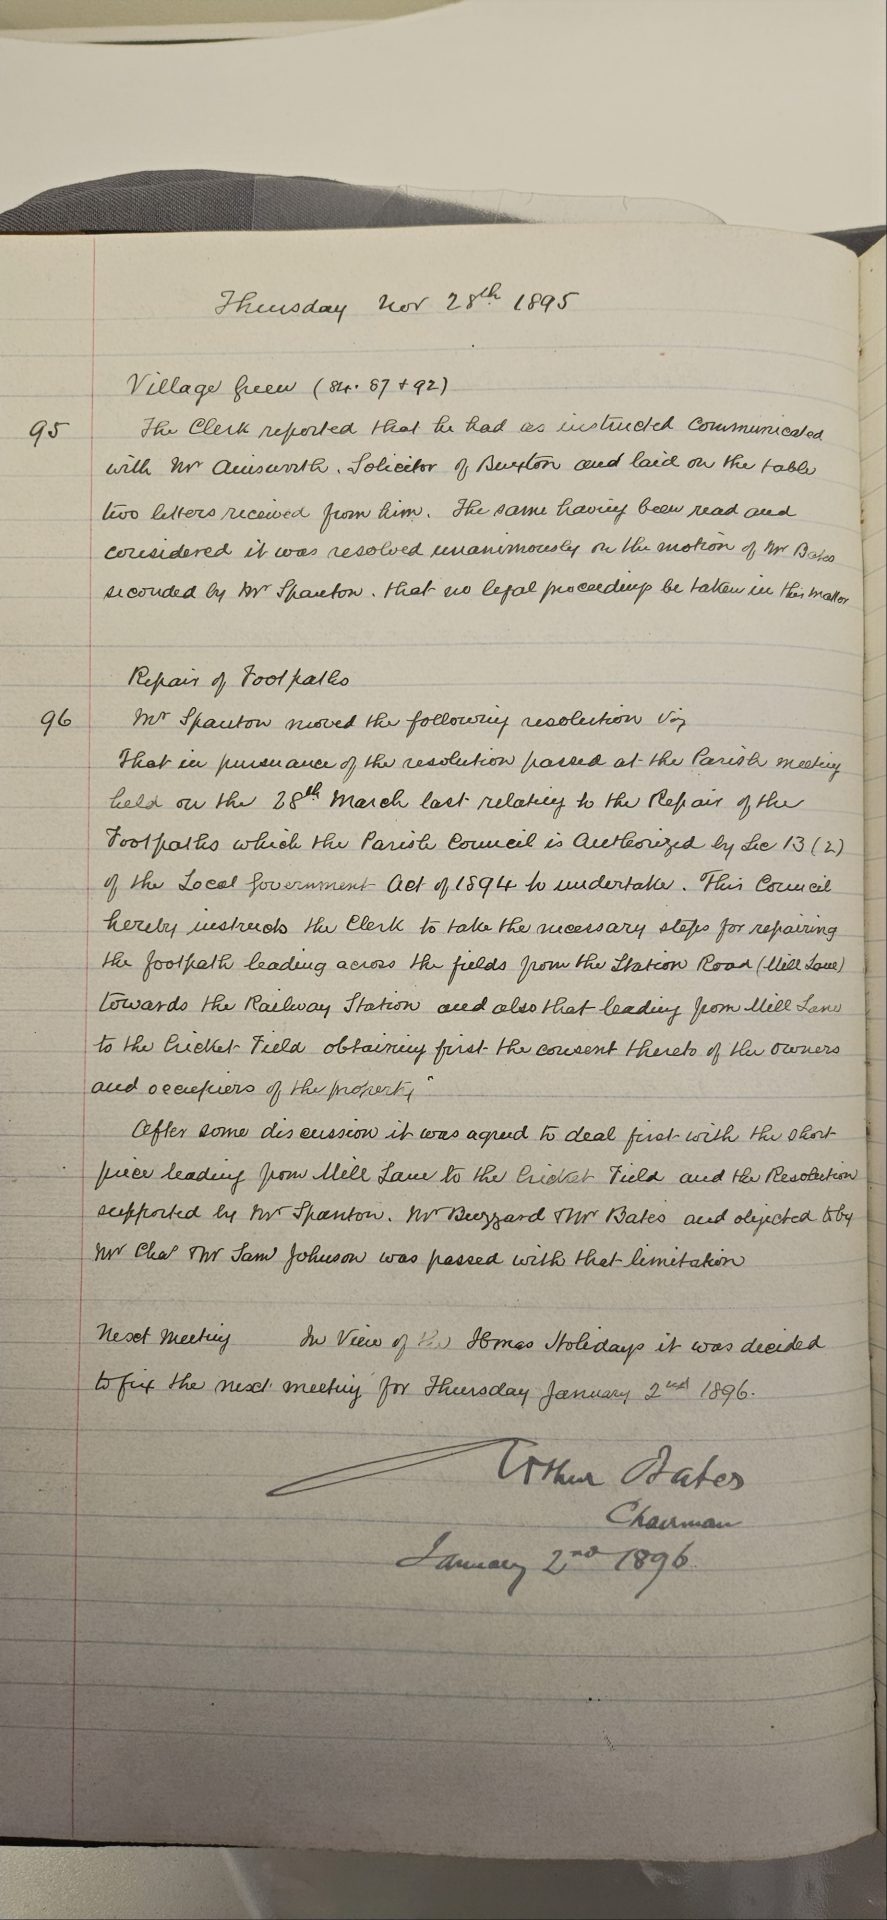 Thursday Nov 28th 1895
Village Green (84. 87 + 92)
95 The Clerk reported that he had as instructed communicated
with Mr Ainsworth. Solicitor of Buxton and laid on the table
two letters received from him. The same having been read and
considered it was resolved unanimously on the motion of Mr Bates
seconded by Mr Spanton. that no legal proceedings be taken in this matter
Repair of Footpaths
96 Mr Spanton moved the following resolution viz
That in pursuance of the resolution passed at the Parish meeting
held on the 28th March last relating to the Repair of the
Footpaths which the Parish Council is Authorized by Sec 13 (2)
of the Local Government Act of 1894 to undertake. This Council
hereby instructs the Clerk to take the necessary steps for repairing
the footpath leading across the fields from the Station Road (Mill Lane)
towards the Railway Station and also that leading from Mill Lane
to the Cricket Field obtaining first the consent thereto of the owners
and occupiers of the property"
After some discussion it was agreed to deal first with the short
piece leading from Mill Lane to the Cricket Field and the Resolution
supported by Mr Spanton. Mr Buzzard & Mr Bates and objected to by
Mr Chas & Mr Saml Johnson was passed with that limitation
Next Meeting In View of the Xmas Holidays it was decided
to fix the next meeting for Thursday January 2nd 1896.
Arthur Bates
Chairman
January 2nd 1896